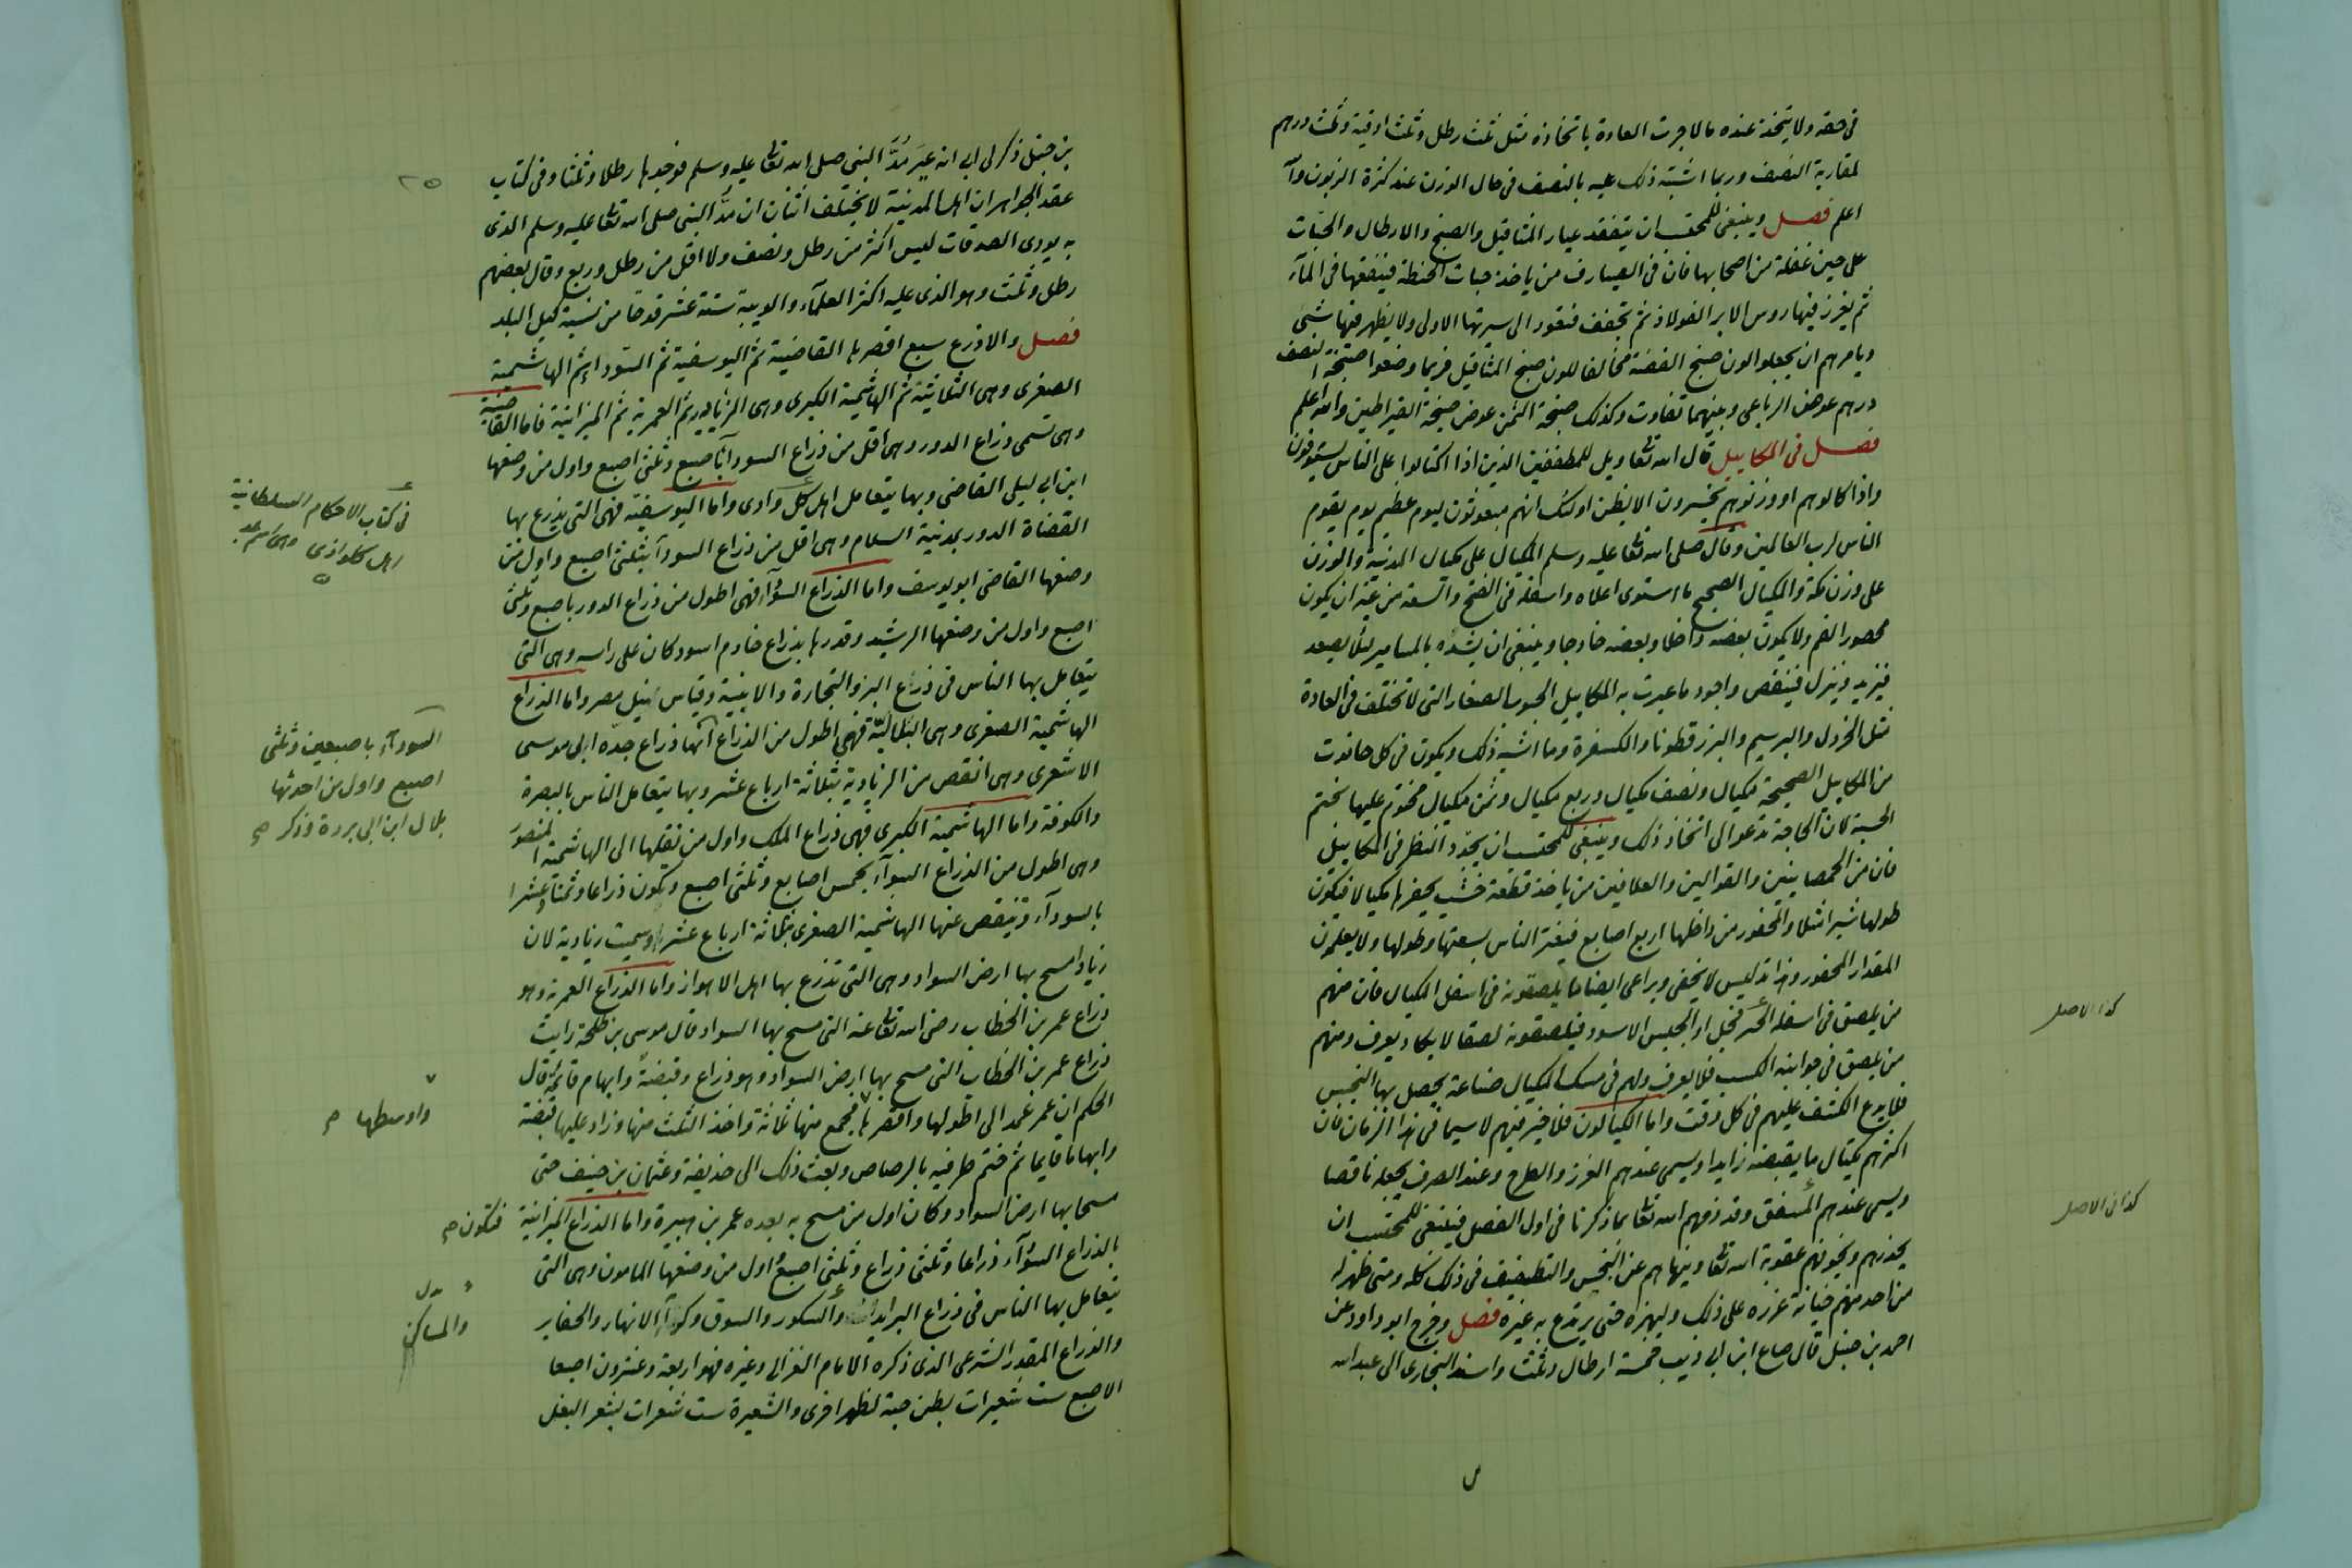 في حقه ولا يتخذ عنده مالا جرت العادة باتخاذه مثل ثمث رطل وثمث اوقية وثمث درهم
لمقاربة النصف وربما اشتبه ذلك عليه بالنصف في حال الوزن عند كثرة الزبون والله
اعلم فصل وينبغي للمحتسب ان يتفقد عيار المثاقيل والصنج والارطال والحبّات
على حين غفلة من اصحابها فان في الصيارف من ياخذ حبات الحنطة فينقعها في المآء
ثم يغرز فيها روس الابر الفولاذ ثم تجفف فتعود الى سيرتها الاولى ولا يظهر فيها شيء
ويامرهم ان يجعلوا لون صنج الفضة مخالفا للون صنج المثاقيل فربما وضعوا صنجة النصف
درهم عوض الرباعي وبينهما تفاوت وكذلك صنجة الثمن عوض صنجة القيراطين والله اعلم
فصل في المكاييل قال الله تعالى ويل للمطففين الذين اذا اكتالوا على الناس يستوفون
واذا كالوهم او وزنوهم يخسرون الا يظن اولئك انهم مبعوثون ليوم عظيم يوم يقوم
الناس لرب العالمين وقال صلى الله تعالى عليه وسلم المكيال على مكيال المدينة والوزن
على وزن مكة والمكيال الصحيح ما استوى اعلاه واسفله في الفتح والسعة من غير ان يكون
محصور الفم ولا يكون بعضه داخلا وبعضه خارجا وينبغي ان يشدّه بالمسامير لئلا يصعد
فيزيد وينزل فينقص واجود ما عيرت به المكاييل الحبوب الصغار التي لا تختلف في العادة
مثل الخردل والبرسيم والبزر قطونا والكسفرة وما اشبه ذلك ويكون في كل حانوت
من المكاييل الصحيحة مكيال ونصف مكيال وربع مكيال وثمن مكيال مختوم عليها بختم
الحسبة لان الحاجة تدعو الى اتخاذ ذلك وينبغي للمحتسب ان يجدّد النظر في المكاييل
فان من الحمصانيين والفوالين والعلافين من ياخذ قطعة خشب يحفرها مكيالا فيكون
طولها شبرا مثلا والمحفور من داخلها اربع اصابع فيغتر الناس بسعتها وطولها ولا يعلمون
المقدار المحفور وهذا تدليس لا يخفى ويراعى ايضا ما يلصقونه في اسفل المكيال فان منهم
من يلصق في اسفله الجبس او الجبس الاسود فيلصقونه لصقا لا يكاد يعرف ومنهم
من يلصق في جوانبه الكسب فلا يعرف ولهم في مسك المكيال صناعة يحصل بها البخس
فلا يدع الكشف عليهم في كل وقت واما الكيالون فلا خير فيهم لا سيما في هذا الزمان فان
اكثرهم يكتال ما يقبضه زايدا ويسمى عندهم الفرز والطرح وعند الصرف يجعله ناقصا
ويسمى عندهم المسفق وقد ذمهم الله تعالى بما ذكرنا في اول الفصل فينبغي للمحتسب ان
يحذرهم ويخوفهم عقوبة الله تعالى وينهاهم عن البخس والتطفيف في ذلك كله ومتى ظهر له
من احد منهم خيانة عزره على ذلك وليهزه حتى يرتدع به غيره فصل وخرج ابو داود عن
احمد بن حنبل قال صاع ابن ابي ذيب خمسة ارطال وثمث واسند البخاري الى عبد الله
كذا الاصل
كذا في الاصل
٢٥
بن حنبل ذكر لي ابي انه عيّر مُدَّ النبي صلى الله تعالى عليه وسلم فوجدها رطلا وثلثا وفي كتاب
عقد الجواهر ان اهل المدينة لا يختلف اثنان ان مدَّ النبي صلى الله تعالى عليه وسلم الذي
به يودى الصدقات ليس اكثر من رطل ونصف ولا اقل من رطل وربع وقال بعضهم
رطل وثمث وهو الذي عليه اكثر العلمآء والويبة ستة عشر قدحا من نسبة كيل البلد
فصل والاذرع سبع اقصرها القاضية ثم اليوسفية ثم السودا ثم الهاشمية
الصغرى وهي البلالية ثم الهاشمية الكبرى وهي الزيادية ثم العمرية ثم الميزانية فاما القاضية
وهي تسمى ذراع الدور وهي اقل من ذراع السودآ باصبع وثلثي اصبع واول من وضعها
ابن ابي ليلى القاضي وبها يتعامل اهل كل وادى واما اليوسفية فهي التي يذرع بها
القضاة الدور بمدينة السلام وهي اقل من ذراع السودآ بثلثي اصبع واول من
وضعها القاضي ابو يوسف واما الذراع السودآء فهي اطول من ذراع الدور باصبع وثلثي
اصبع واول من وضعها الرشيد وقدرها بذراع خادم اسود كان على راسه وهي التي
يتعامل بها الناس في ذراع البز والتجارة والابنية وقياس نيل مصر واما الذراع
الهاشمية الصغرى وهي البلالية فهي اطول من الذراع انها ذراع جدّه ابي موسى
الاشعري وهي انقص من الزيادية بثلاثة ارباع عشر وبها يتعامل الناس بالبصرة
والكوفة واما الهاشمية الكبرى فهي ذراع الملك واول من نقلها الى الهاشمية المنصور
وهي اطول من الذراع السودآء بخمس اصابع وثلثي اصبع وتكون ذراعا وثمنا وعشرا
بالسودآء وتنقص عنها الهاشمية الصغرى بثلاثة ارباع عشر وسميت زيادية لان
زيادا مسح بها ارض السواد وهي التي تذرع بها اهل الاهواز واما الذراع العمرية وهو
ذراع عمر بن الخطاب رضى الله تعالى عنه التي مسح بها السواد قال موسى بن طلحة رايت
ذراع عمر بن الخطاب التي مسح بها ارض السواد وهو ذراع وقبضة وابهام قائمة قال
الحكم ان عمر عمد الى اطولها واقصرها فجمع منها ثلاثة واخذ الثلث منها وزاد عليها قبضة
وابهاما قايما ثم ختم طرفيه بالرصاص وبعث ذلك الى حذيفة وعثمان بن حنيف حتى
مسحا بها ارض السواد وكان اول من مسح به بعده عمر بن هبيرة واما الذراع الميزانية
بالذراع السودآء ذراعا وثلثي ذراع وثلثي اصبع اول من وضعها المامون وهي التي
يتعامل بها الناس في ذراع البرايد والسكور والسوق وكرآء الانهار والحفاير
والذراع المقدر الشرعي الذي ذكره الامام الغزالي وغيره فهو اربعة وعشرون اصبعا
الاصبع ست شعيرات بطن حبة لظهر اخرى والشعيرة ست شعرات بشعر البغل
في كتاب الاحكام السلطانية
اهل كلواذى
السودآء باصبعين وثلثي
اصبع واول من احدثها
بلال ابن ابي بردة وذكر صح
واوسطها صح
فتكون صح
بدل
والمساكن